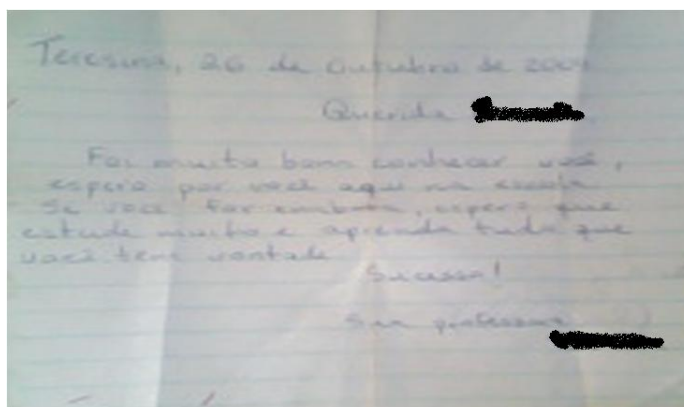 Teresina, 26 de Outubro de 2009
Querida
Foi muito bom conhecer você,
espero por você aqui na escola
Se você for embora, espero que
estude muito e aprenda tudo que
você tem vontade
Sucesso!
Sua professora